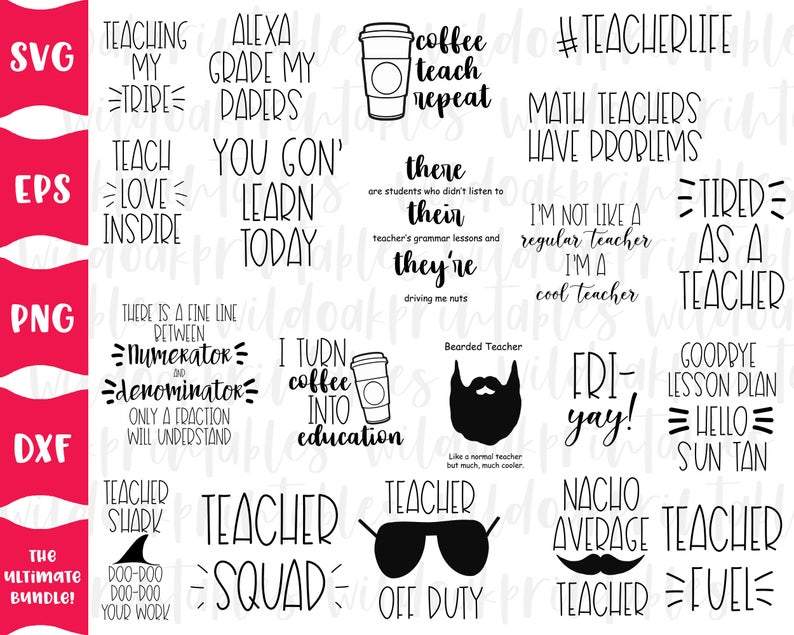 SVG
EPS
PNG
DXF
THE
ULTIMATE
BUNDLE!
TEACHING
MY
TRIBE
ALEXA
GRADE MY
PAPERS
coffee
teach
repeat
#TEACHERLIFE
MATH TEACHERS
HAVE PROBLEMS
TEACH
LOVE
INSPIRE
YOU GON'
LEARN
TODAY
there
are students who didn't listen to
their
teacher's grammar lessons and
they're
driving me nuts
I'M NOT LIKE A
regular teacher
I'M A
cool teacher
TIRED
AS A
TEACHER
THERE IS A FINE LINE
BETWEEN
Numerator
AND
denominator
ONLY A FRACTION
WILL UNDERSTAND
I TURN
coffee
INTO
education
Bearded Teacher
Like a normal teacher
but much, much cooler.
FRI-
yay!
GOODBYE
LESSON PLAN
HELLO
SUN TAN
TEACHER
SHARK
DOO-DOO
DOO-DOO
YOUR WORK
TEACHER
SQUAD
TEACHER
OFF DUTY
NACHO
AVERAGE
TEACHER
TEACHER
FUEL
wildoakprintables